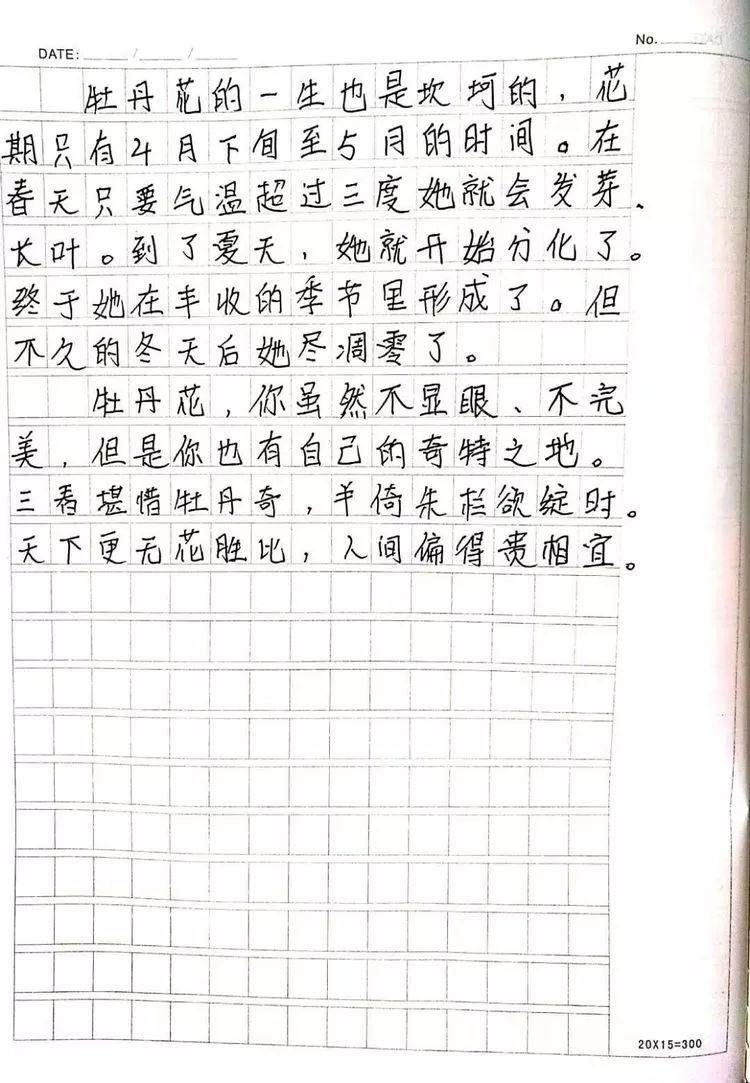 No.
DATE: / /
牡丹花的一生也是坎坷的，花
期只有4月下旬至5月的时间。在
春天只要气温超过三度她就会发芽、
长叶。到了夏天，她就开始分化了。
终于她在丰收的季节里形成了。但
不久的冬天后她尽凋零了。
牡丹花，你虽然不显眼、不完
美，但是你也有自己的奇特之地。
三看堪惜牡丹奇，半倚朱栏欲绽时。
天下更无花胜比，人间偏得贵相宜。
20X15=300